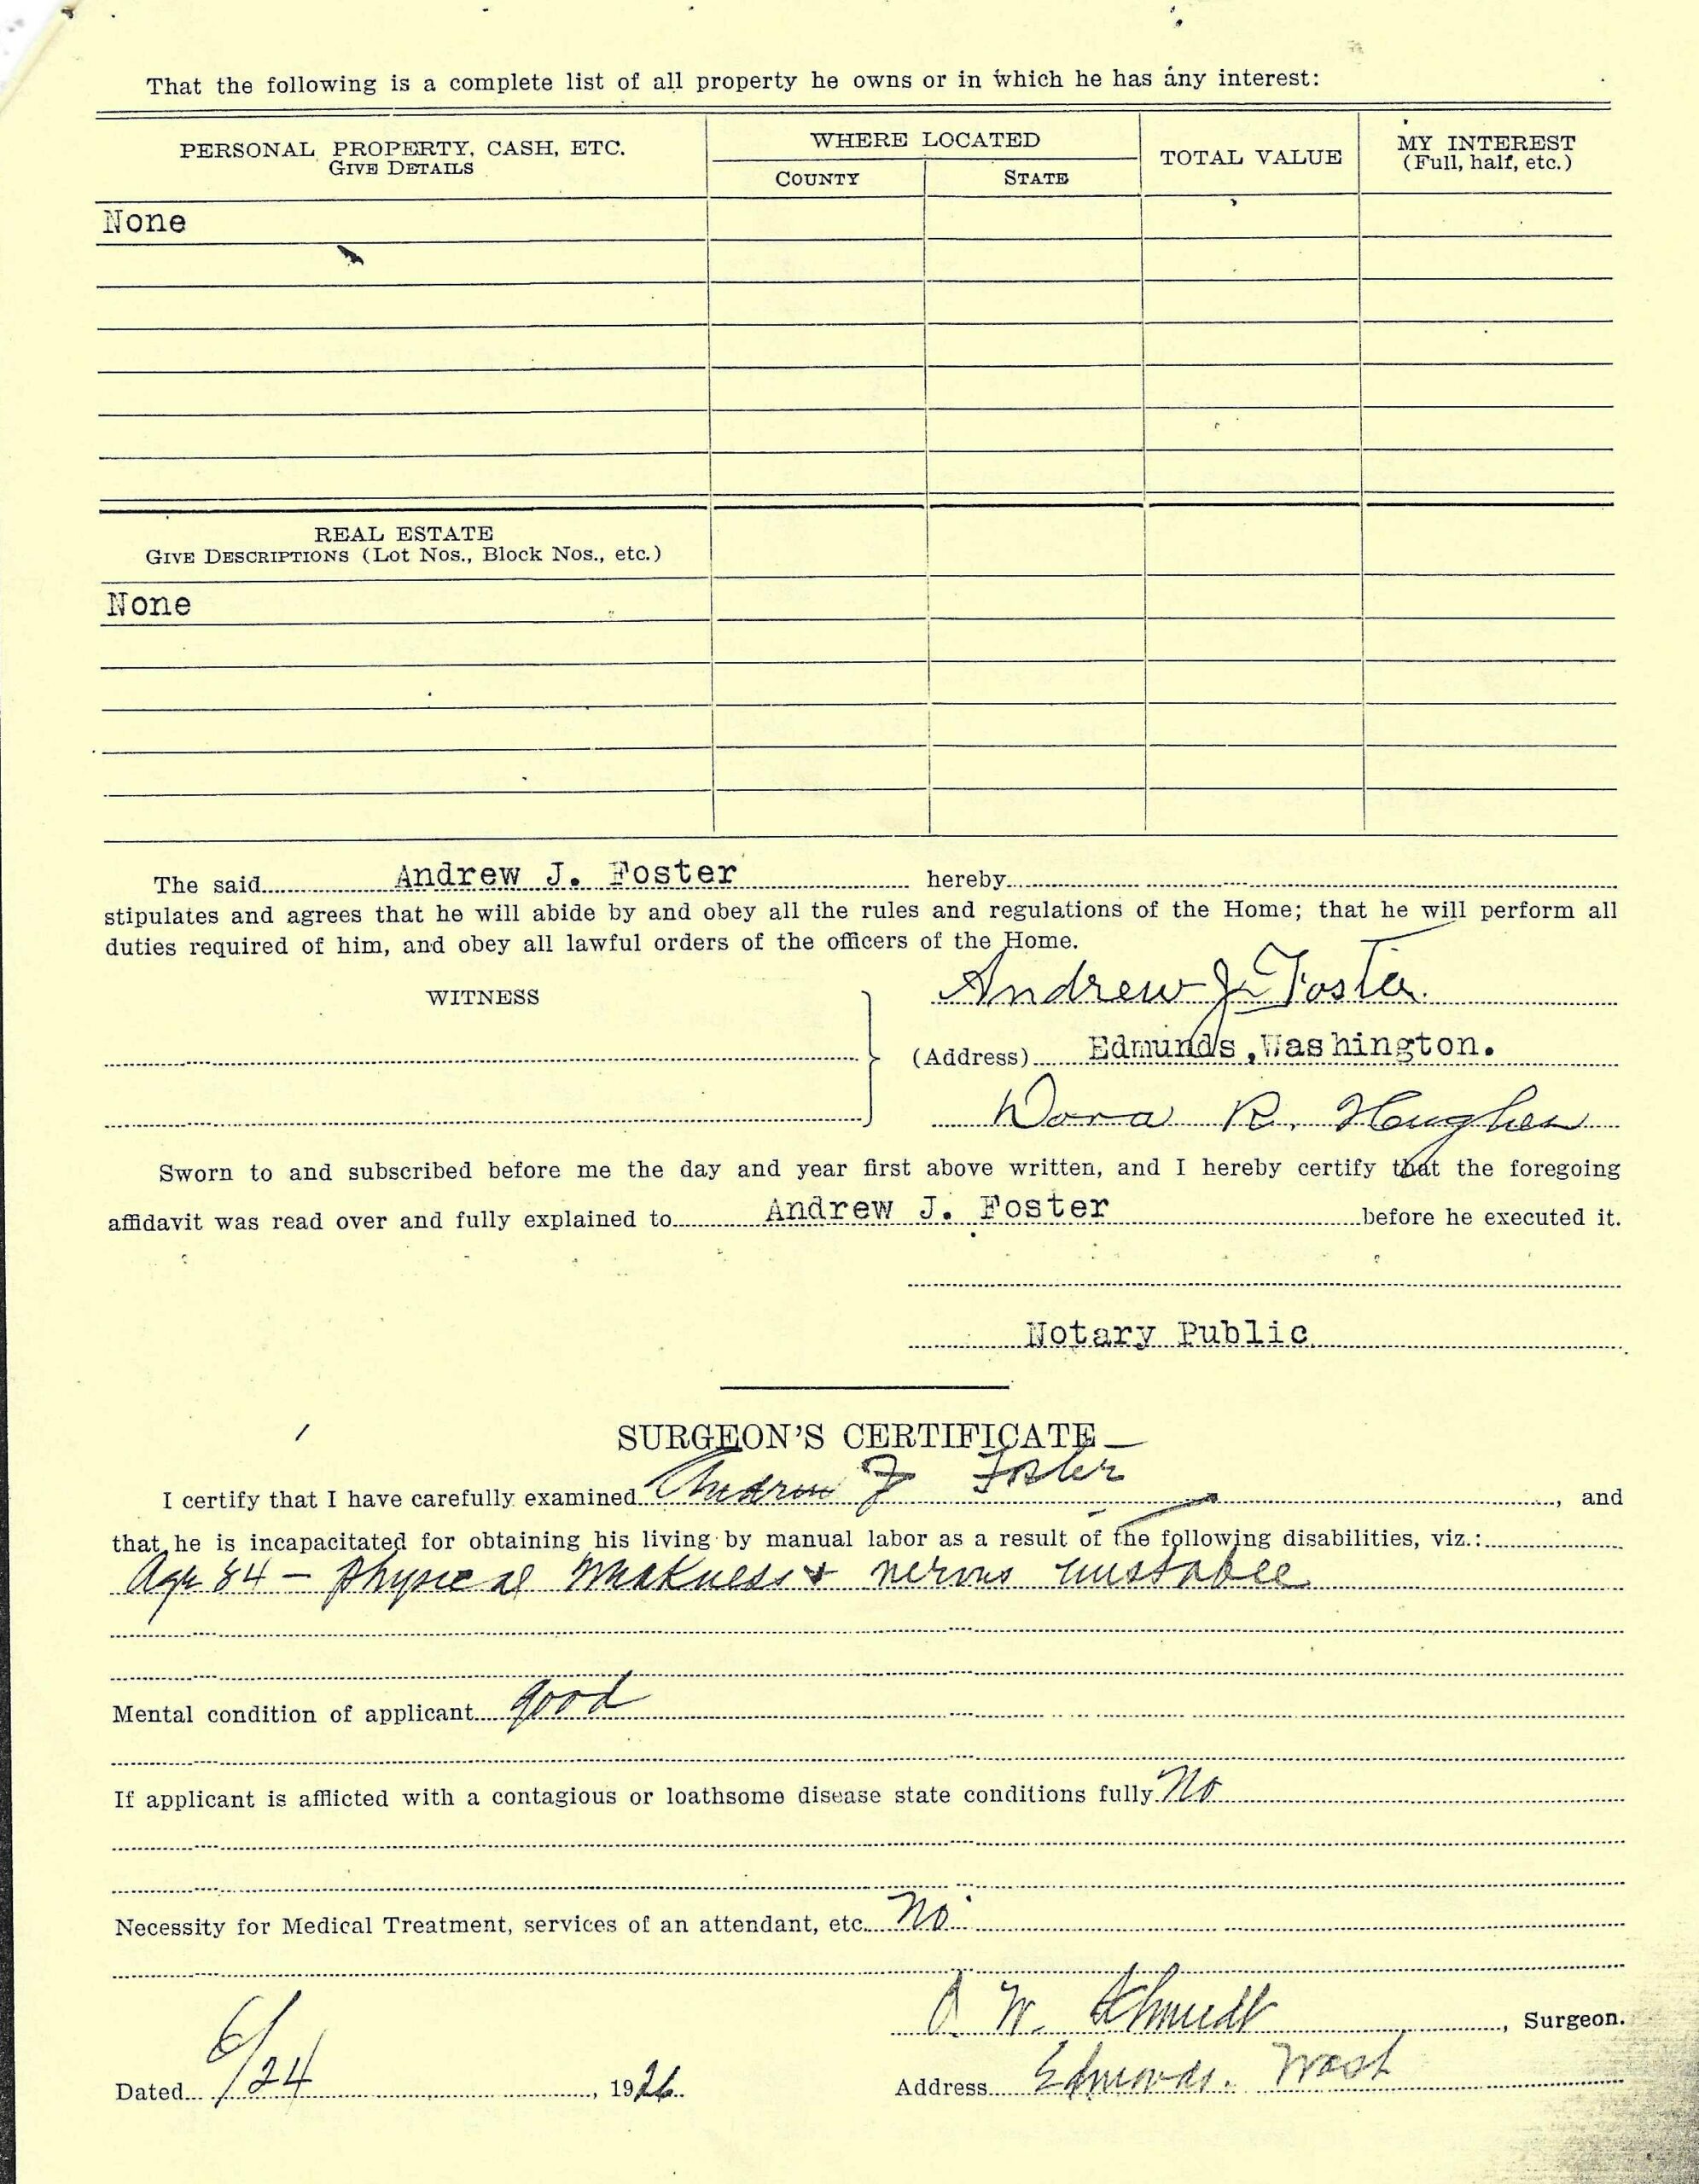 That the following is a complete list of all property he owns or in which he has any interest:
PERSONAL PROPERTY, CASH, ETC.
GIVE DETAILS
WHERE LOCATED
COUNTY
STATE
TOTAL VALUE
MY INTEREST
(Full, half, etc.)
None
REAL ESTATE
GIVE DESCRIPTIONS (Lot Nos., Block Nos., etc.)
None
The said Andrew J. Foster hereby
stipulates and agrees that he will abide by and obey all the rules and regulations of the Home; that he will perform all
duties required of him, and obey all lawful orders of the officers of the Home.
WITNESS
Andrew J. Foster
(Address) Edmunds, Washington.
Dora R. Hughes
Sworn to and subscribed before me the day and year first above written, and I hereby certify that the foregoing
affidavit was read over and fully explained to Andrew J. Foster before he executed it.
Notary Public
SURGEON'S CERTIFICATE
I certify that I have carefully examined Andrew J Foster, and
that he is incapacitated for obtaining his living by manual labor as a result of the following disabilities, viz.:
Age 84 – physical weakness & nervous unstable
Mental condition of applicant good
If applicant is afflicted with a contagious or loathsome disease state conditions fully No
Necessity for Medical Treatment, services of an attendant, etc. No
O. W. Schmidt, Surgeon.
Dated 6/24, 1926.
Address Edmonds. Wash